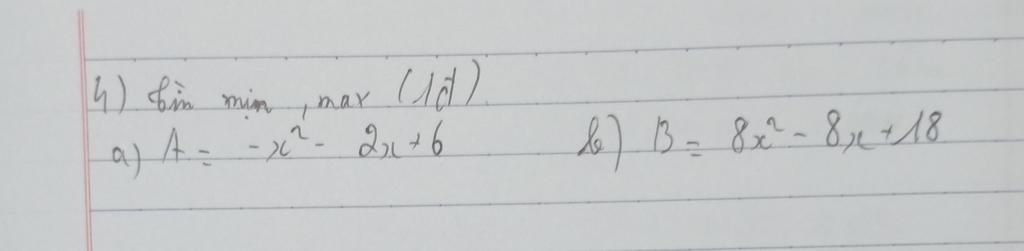 4) tìm min, max (1đ)
a) A = -x² - 2x + 6 b) B = 8x² - 8x + 18